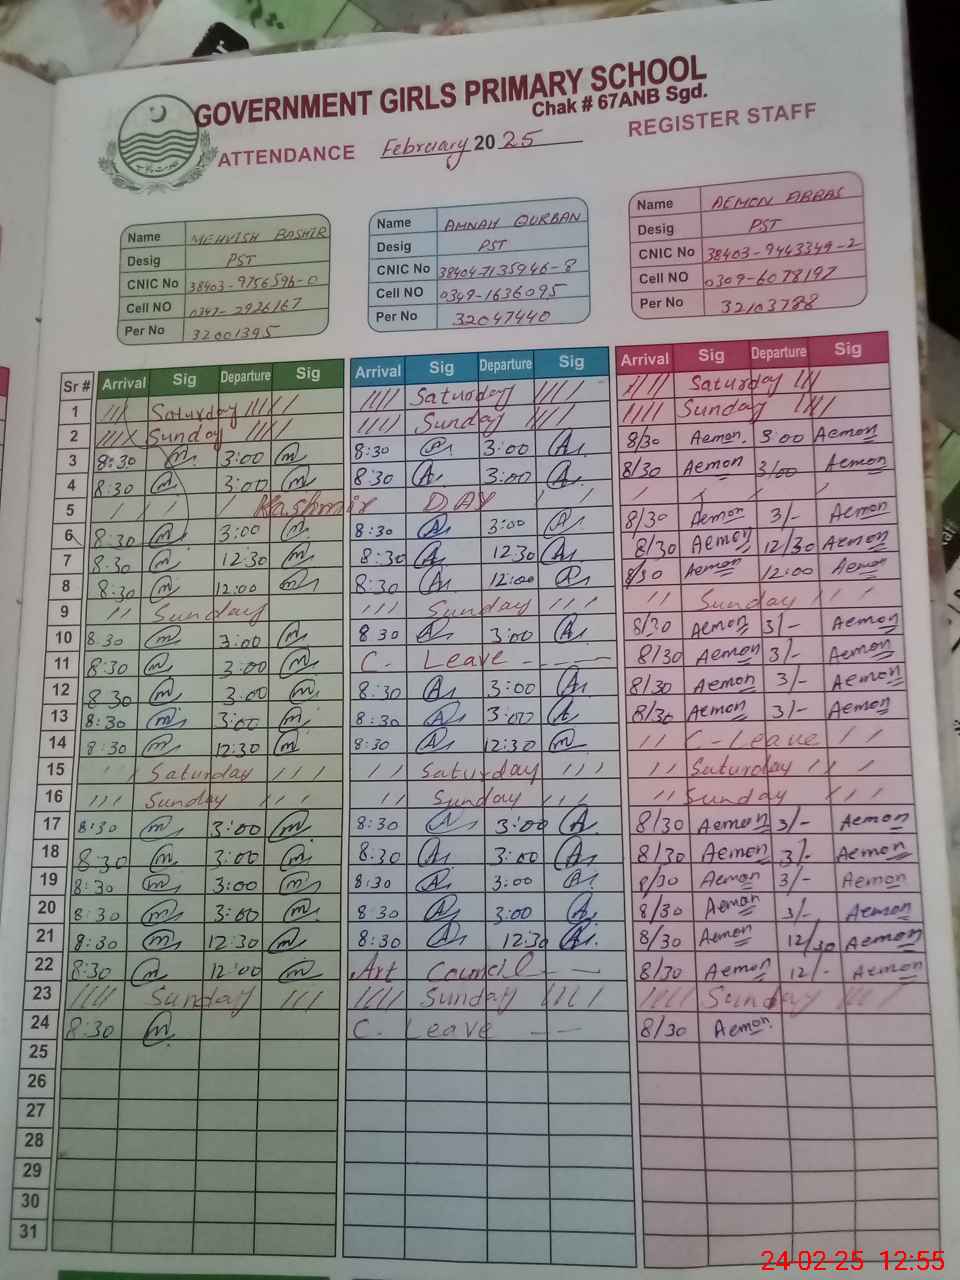 GOVERNMENT GIRLS PRIMARY SCHOOL
Chak # 67ANB Sgd.
ATTENDANCE February 2025 REGISTER STAFF
Name MEHVISH BASHIR Name AMNAH QURBAN Name AEMON ABBAS
Desig PST Desig PST Desig PST
CNIC No 38403-9756596-0 CNIC No 38404-7135946-8 CNIC No 38403-9443349-2
Cell NO 0347-2926167 Cell NO 0349-1636095 Cell NO 0309-6078197
Per No 32001395 Per No 32047440 Per No 32103788
Sr # Arrival Sig Departure Sig Arrival Sig Departure Sig Arrival Sig Departure Sig
1 Saturday Saturday Saturday
2 Sunday Sunday Sunday
3 8:30 m 3:00 m 8:30 A 3:00 A 8/30 Aemon 3:00 Aemon
4 8:30 m 3:00 m 8:30 A 3:00 A 8/30 Aemon 3/00 Aemon
5 Kashmir DAY
6 8:30 m 3:00 m 8:30 A 3:00 A 8/30 Aemon 3/- Aemon
7 8:30 m 12:30 m 8:30 A 12:30 A 8/30 Aemon 12/30 Aemon
8 8:30 m 12:00 m 8:30 A 12:00 A 8/30 Aemon 12:00 Aemon
9 Sunday Sunday Sunday
10 8:30 m 3:00 m 8:30 A 3:00 A 8/30 Aemon 3/- Aemon
11 8:30 m 3:00 m C. Leave 8/30 Aemon 3/- Aemon
12 8:30 m 3:00 m 8:30 A 3:00 A 8/30 Aemon 3/- Aemon
13 8:30 m 3:00 m 8:30 A 3:00 A 8/30 Aemon 3/- Aemon
14 8:30 m 12:30 m 8:30 A 12:30 m C-Leave
15 Saturday Saturday Saturday
16 Sunday Sunday Sunday
17 8:30 m 3:00 m 8:30 A 3:00 A 8/30 Aemon 3/- Aemon
18 8:30 m 3:00 m 8:30 A 3:00 A 8/30 Aemon 3/- Aemon
19 8:30 m 3:00 m 8:30 A 3:00 A 8/30 Aemon 3/- Aemon
20 8:30 m 3:00 m 8:30 A 3:00 A 8/30 Aemon 3/- Aemon
21 8:30 m 12:30 m 8:30 A 12:30 A 8/30 Aemon 12/30 Aemon
22 8:30 m 12:00 m Art Council 8/30 Aemon 12/- Aemon
23 Sunday Sunday Sunday
24 8:30 m C. Leave 8/30 Aemon
25
26
27
28
29
30
31
24 02 25 12:55